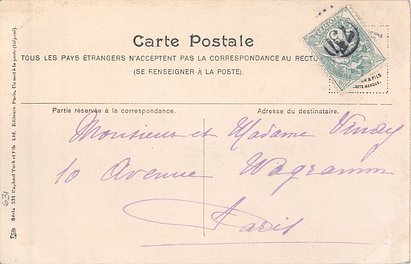 Carte Postale
TOUS LES PAYS ÉTRANGERS N'ACCEPTENT PAS LA CORRESPONDANCE AU RECTO
(SE RENSEIGNER À LA POSTE).
& FILS
Partie réservée à la correspondance.
Adresse du destinataire.
Monsieur et Madame Vinay
10 Avenue Wagramm
Paris
631
Série 231 Raphael Tuck et Fils Ltd, Editeurs Paris.